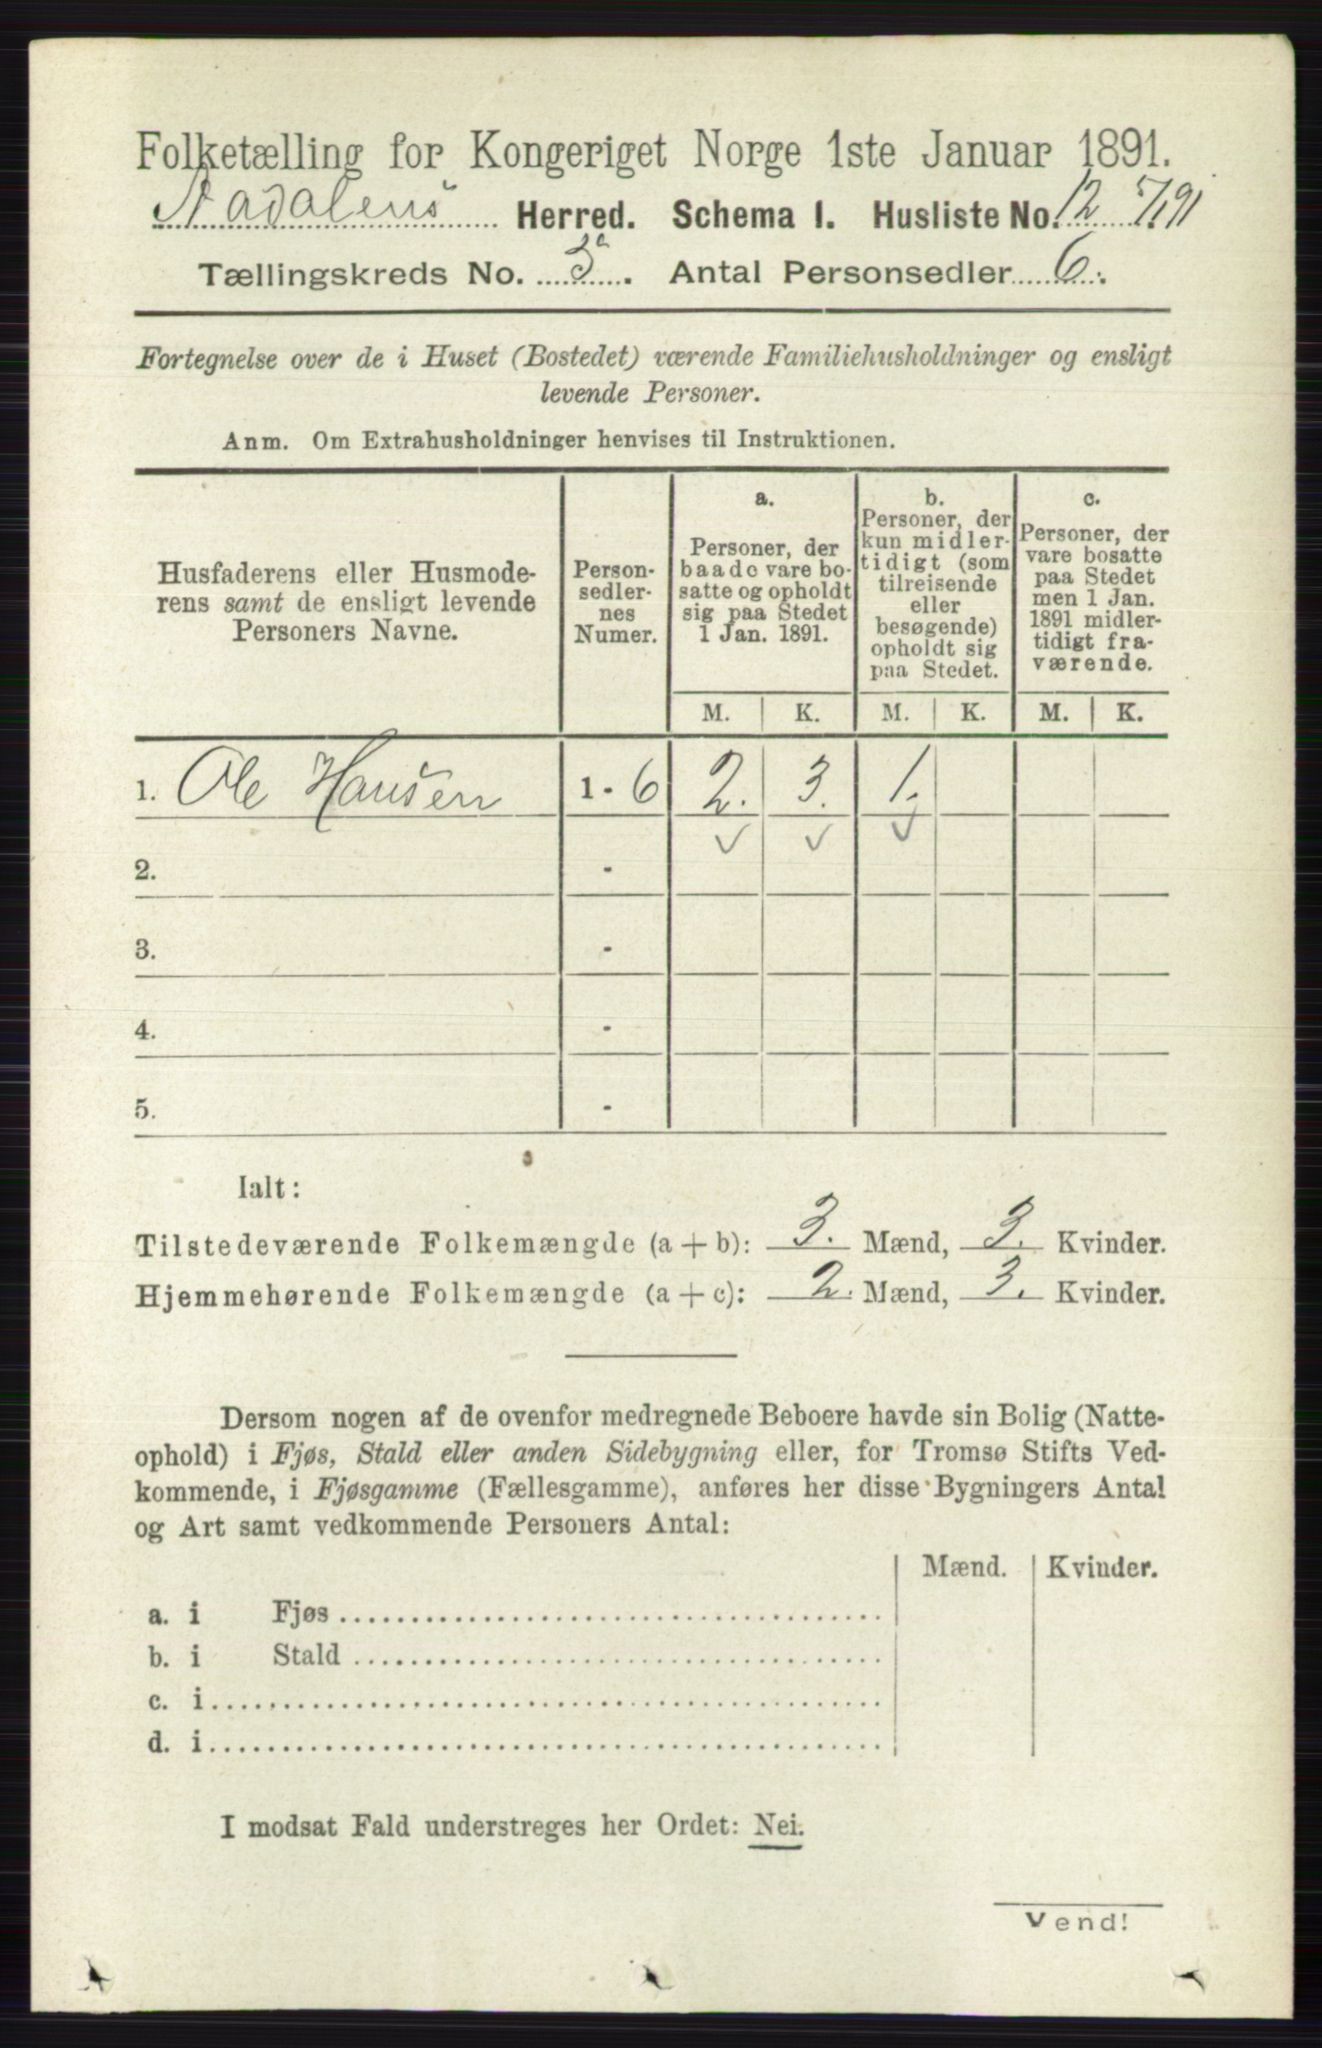 Folketælling for Kongeriget Norge 1ste Januar 1891.
Aadalens Herred. Schema 1. Husliste No. 12
Tællingskreds No. 3a. Antal Personsedler 6.
Fortegnelse over de i Huset (Bostedet) værende Familiehusholdninger og ensligt
levende Personer.
Anm. Om Extrahusholdninger henvises til Instruktionen.
Husfaderens eller Husmode-
rens samt de ensligt levende
Personers Navne.
Person-
sedler-
nes
Numer.
a.
Personer, der
baade vare bo-
satte og opholdt
sig paa Stedet
1 Jan. 1891.
b.
Personer, der
kun midler-
tidigt (som
tilreisende
eller
besøgende)
opholdt sig
paa Stedet.
c.
Personer, der
vare bosatte
paa Stedet
men 1 Jan.
1891 midler-
tidigt fra-
værende.
M. K. M. K. M. K.
1. Ole Hansen 1 - 6 2. 3. 1.
2. -
3. -
4. -
5. -
Ialt:
Tilstedeværende Folkemængde (a + b): 3. Mænd, 3. Kvinder.
Hjemmehørende Folkemængde (a + c): 2. Mænd, 3. Kvinder.
Dersom nogen af de ovenfor medregnede Beboere havde sin Bolig (Natte-
ophold) i Fjøs, Stald eller anden Sidebygning eller, for Tromsø Stifts Ved-
kommende, i Fjøsgamme (Fællesgamme), anføres her disse Bygningers Antal
og Art samt vedkommende Personers Antal:
Mænd. Kvinder.
a. i Fjøs
b. i Stald
c. i
d. i
I modsat Fald understreges her Ordet: Nei.
Vend!